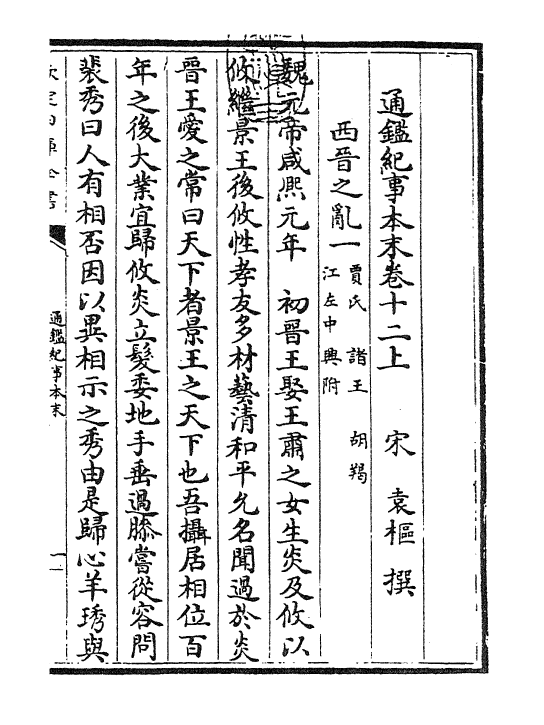 通鑑紀事本末卷十二上　　宋　袁樞　撰
西晉之亂一　賈氏　諸王　胡羯
江左中興附
魏元帝咸熙元年　初晉王娶王肅之女生炎及攸以
攸繼景王後攸性孝友多材藝清和平允名聞過於炎
晉王愛之常曰天下者景王之天下也吾攝居相位百
年之後大業宜歸攸炎立髮委地手垂過膝嘗從容問
裴秀曰人有相否因以異相示之秀由是歸心羊琇與
通鑑紀事本末
一